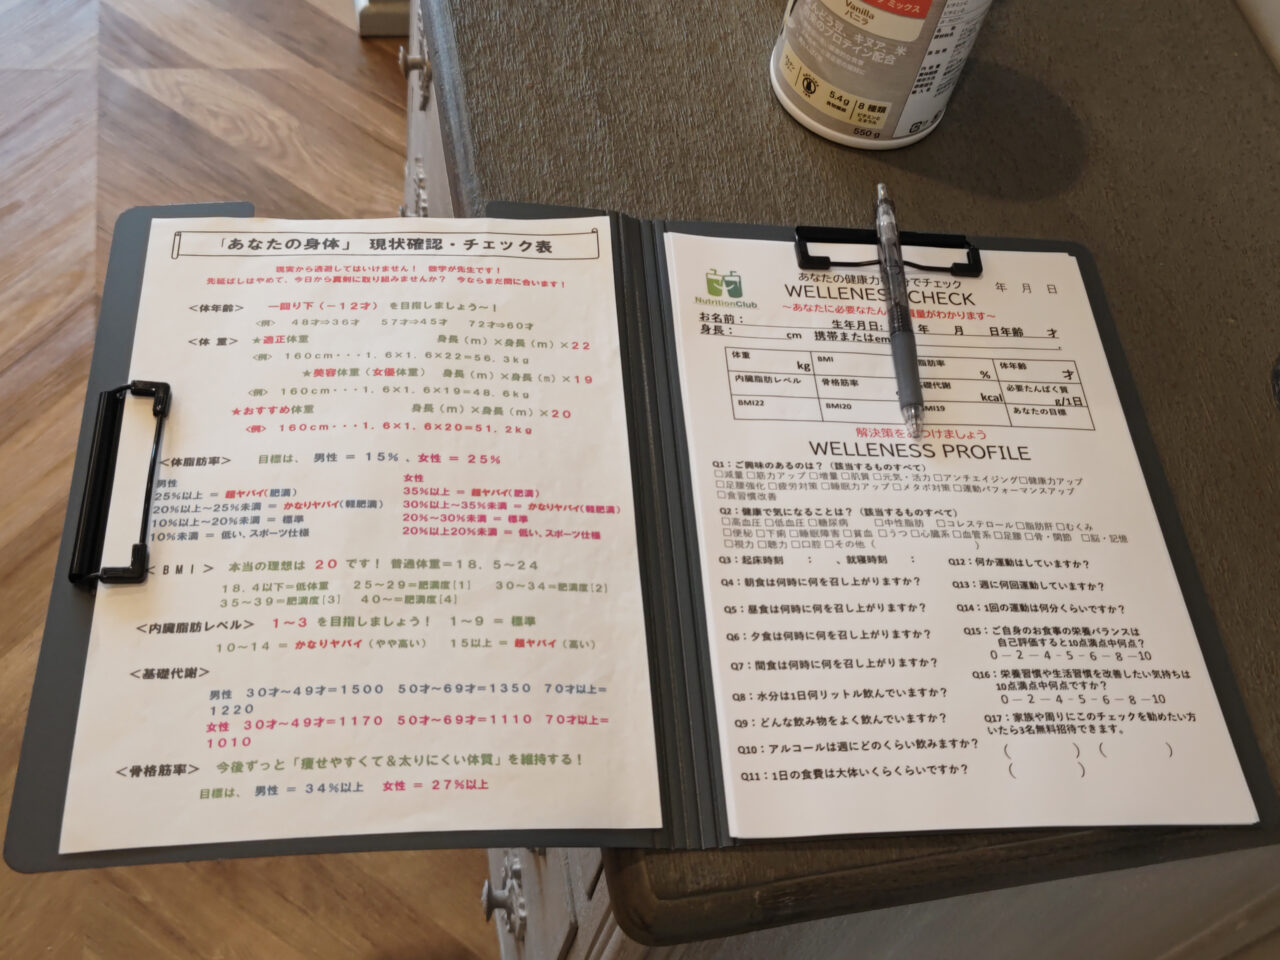 Vanilla
バニラ
キヌア、米
プロテイン配合
5.4g
8種類
ビタミンと
ミネラル
550g
「あなたの身体」 現状確認・チェック表
現実から逃避してはいけません! 数字が先生です!
先延ばしはやめて、今日から真剣に取り組みませんか? 今ならまだ間に合います!
<体年齢> 一回り下(-12才) を目指しましょう~!
<例> 48才⇒36才 57才⇒45才 72才⇒60才
<体 重> ★適正体重 身長(m)×身長(m)×22
<例> 160cm・・・1.6×1.6×22=56.3kg
★美容体重(女優体重) 身長(m)×身長(m)×19
<例> 160cm・・・1.6×1.6×19=48.6kg
★おすすめ体重 身長(m)×身長(m)×20
<例> 160cm・・・1.6×1.6×20=51.2kg
<体脂肪率> 目標は、男性 = 15% 、女性 = 25%
男性
25%以上 = 超ヤバイ(肥満)
20%以上~25%未満 = かなりヤバイ(軽肥満)
10%以上~20%未満 = 標準
10%未満 = 低い、スポーツ仕様
女性
35%以上 = 超ヤバイ(肥満)
30%以上~35%未満 = かなりヤバイ(軽肥満)
20%~30%未満 = 標準
20%以上20%未満 = 低い、スポーツ仕様
<BMI> 本当の理想は 20 です! 普通体重=18.5~24
18.4以下=低体重 25~29=肥満度[1] 30~34=肥満度[2]
35~39=肥満度[3] 40~=肥満度[4]
<内臓脂肪レベル> 1~3 を目指しましょう! 1~9 = 標準
10~14 = かなりヤバイ(やや高い) 15以上= 超ヤバイ(高い)
<基礎代謝>
男性 30才~49才=1500 50才~69才=1350 70才以上=
1220
女性 30才~49才=1170 50才~69才=1110 70才以上=
1010
<骨格筋率> 今後ずっと「痩せやすくて&太りにくい体質」を維持する!
目標は、男性 = 34%以上 女性 = 27%以上
NutritionClub
あなたの健康力 分でチェック
WELLENESS CHECK 年 月 日
~あなたに必要なたん 質量がわかります~
お名前: 生年月日: 年 月 日 年齢 才
身長: cm 携帯またはem
体重 kg BMI 脂肪率 % 体年齢 才
内臓脂肪レベル 骨格筋率 基礎代謝 kcal 必要たんぱく質 g/1日
BMI22 BMI20 BMI19 あなたの目標
解決策を つけましょう
WELLENESS PROFILE
Q1:ご興味のあるのは?(該当するものすべて)
□減量 □筋力アップ □増量 □肌質 □元気・活力 □アンチエイジング □健康力アップ
□足腰強化 □疲労対策 □睡眠力アップ □メタボ対策 □運動パフォーマンスアップ
□食習慣改善
Q2:健康で気になることは?(該当するものすべて)
□高血圧 □低血圧 □糖尿病 □中性脂肪 □コレステロール □脂肪肝 □むくみ
□便秘 □下痢 □睡眠障害 □貧血 □うつ □心臓系 □血管系 □足腰 □骨・関節 □脳・記憶
□視力 □聴力 □口腔 □その他( )
Q3:起床時刻 : 、就寝時刻 :
Q4:朝食は何時に何を召し上がりますか?
Q5:昼食は何時に何を召し上がりますか?
Q6:夕食は何時に何を召し上がりますか?
Q7:間食は何時に何を召し上がりますか?
Q8:水分は1日何リットル飲んでいますか?
Q9:どんな飲み物をよく飲んでいますか?
Q10:アルコールは週にどのくらい飲みますか?
Q11:1日の食費は大体いくらくらいですか?
Q12:何か運動はしていますか?
Q13:週に何回運動していますか?
Q14:1回の運動は何分くらいですか?
Q15:ご自身のお食事の栄養バランスは
自己評価すると10点満点中何点?
0-2-4-5-6-8-10
Q16:栄養習慣や生活習慣を改善したい気持ちは
10点満点中何点ですか?
0-2-4-5-6-8-10
Q17:家族や周りにこのチェックを勧めたい方
いたら3名無料招待できます。
( ) ( )
( )